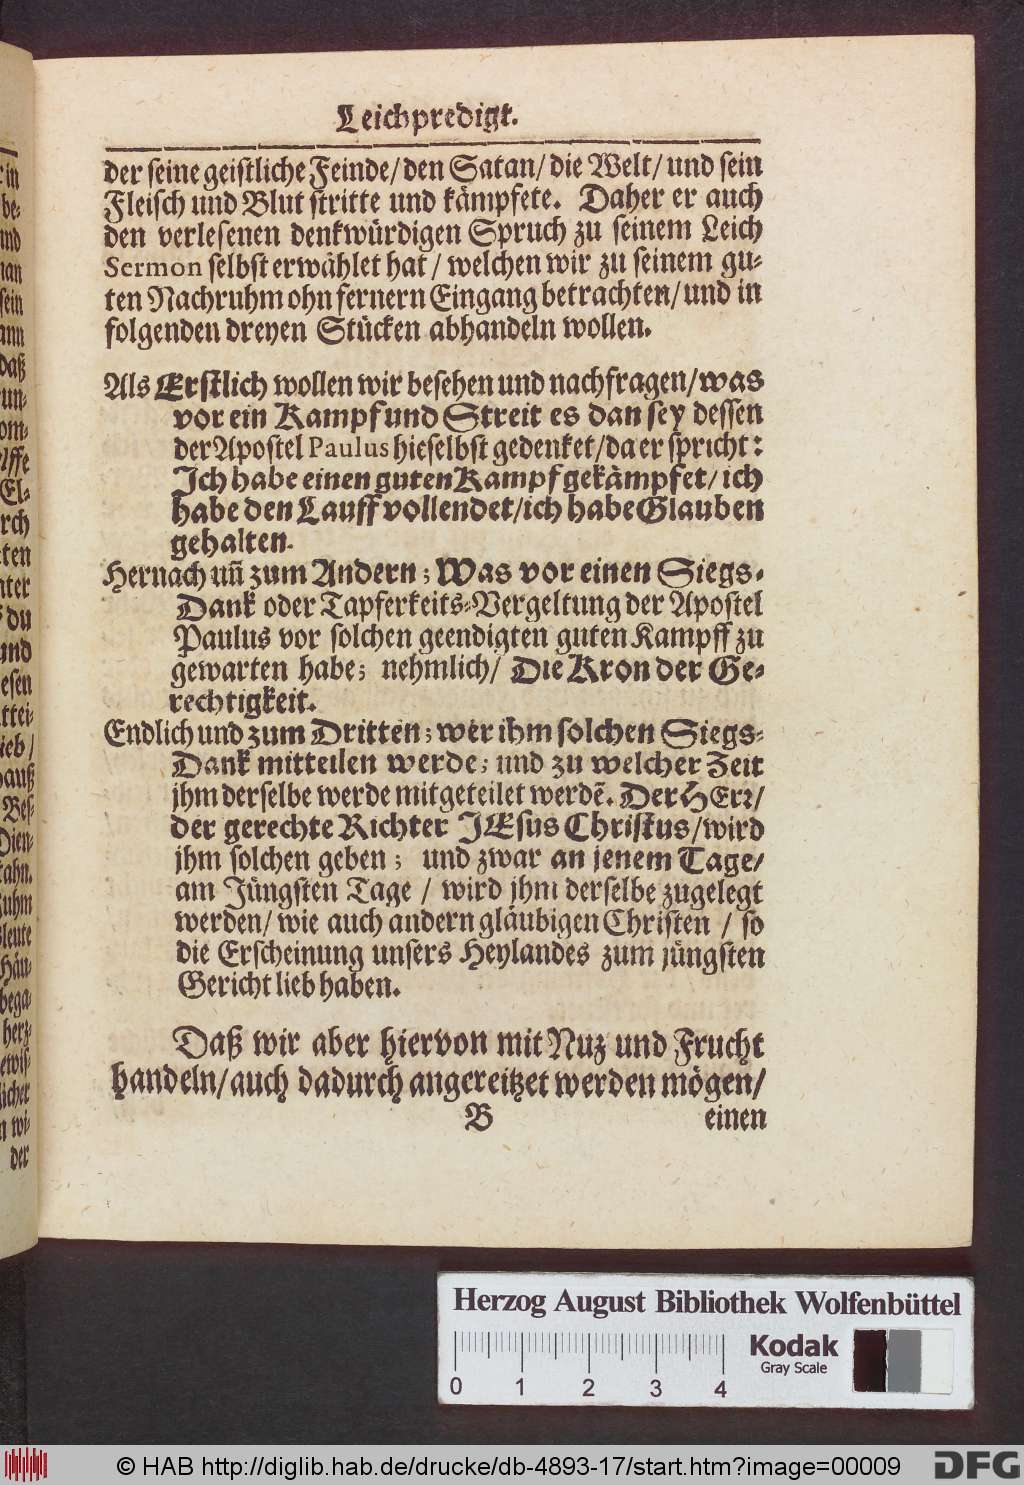 Leichpredigt.
der seine geistliche Feinde/ den Satan/ die Welt/ und sein
Fleisch und Blut stritte und kämpfete. Daher er auch
den verlesenen denkwürdigen Spruch zu seinem Leich
Sermon selbst erwählet hat / welchen wir zu seinem gu-
ten Nachruhm ohn fernern Eingang betrachten/ und in
folgenden dreyen Stücken abhandeln wollen.
Als Erstlich wollen wir besehen und nachfragen/ was
vor ein Kampf und Streit es dan sey dessen
der Apostel Paulus hieselbst gedenket/ da er spricht:
Ich habe einen guten Kampf gekämpfet/ ich
habe den Lauff vollendet/ ich habe Glauben
gehalten.
Hernach uñ zum Andern; Was vor einen Siegs-
Dank oder Tapferkeits-Vergeltung der Apostel
Paulus vor solchen geendigten guten Kampff zu
gewarten habe; nehmlich/ Die Kron der Ge-
rechtigkeit.
Endlich und zum Dritten; wer ihm solchen Siegs-
Dank mitteilen werde; und zu welcher Zeit
jhm derselbe werde mitgeteilet werdẽ. Der HErr/
der gerechte Richter JEsus Christus/ wird
jhm solchen geben; und zwar an jenem Tage/
am Jüngsten Tage / wird jhm derselbe zugelegt
werden/ wie auch andern gläubigen Christen / so
die Erscheinung unsers Heylandes zum jüngsten
Gericht lieb haben.
Daß wir aber hiervon mit Nuz und Frucht
handeln/ auch dadurch angereitzet werden mögen/
B einen
rin
be-
und
man
sein
ann
daß
un-
om-
El-
rch
ten
nter
du
und
esen
ttei-
ieb/
auß
Bes-
Dien-
ahn.
uhm
leute
Häu-
bega-
herz-
ewis-
licher
n wi-
der
Herzog August Bibliothek Wolfenbüttel
Kodak
Gray Scale
0 1 2 3 4
© HAB http://diglib.hab.de/drucke/db-4893-17/start.htm?image=00009
DFG